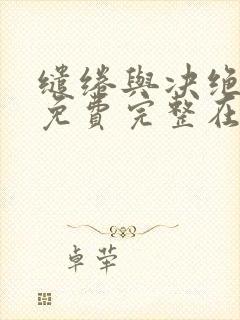 缱绻與决绝
免費完整在
卓荦